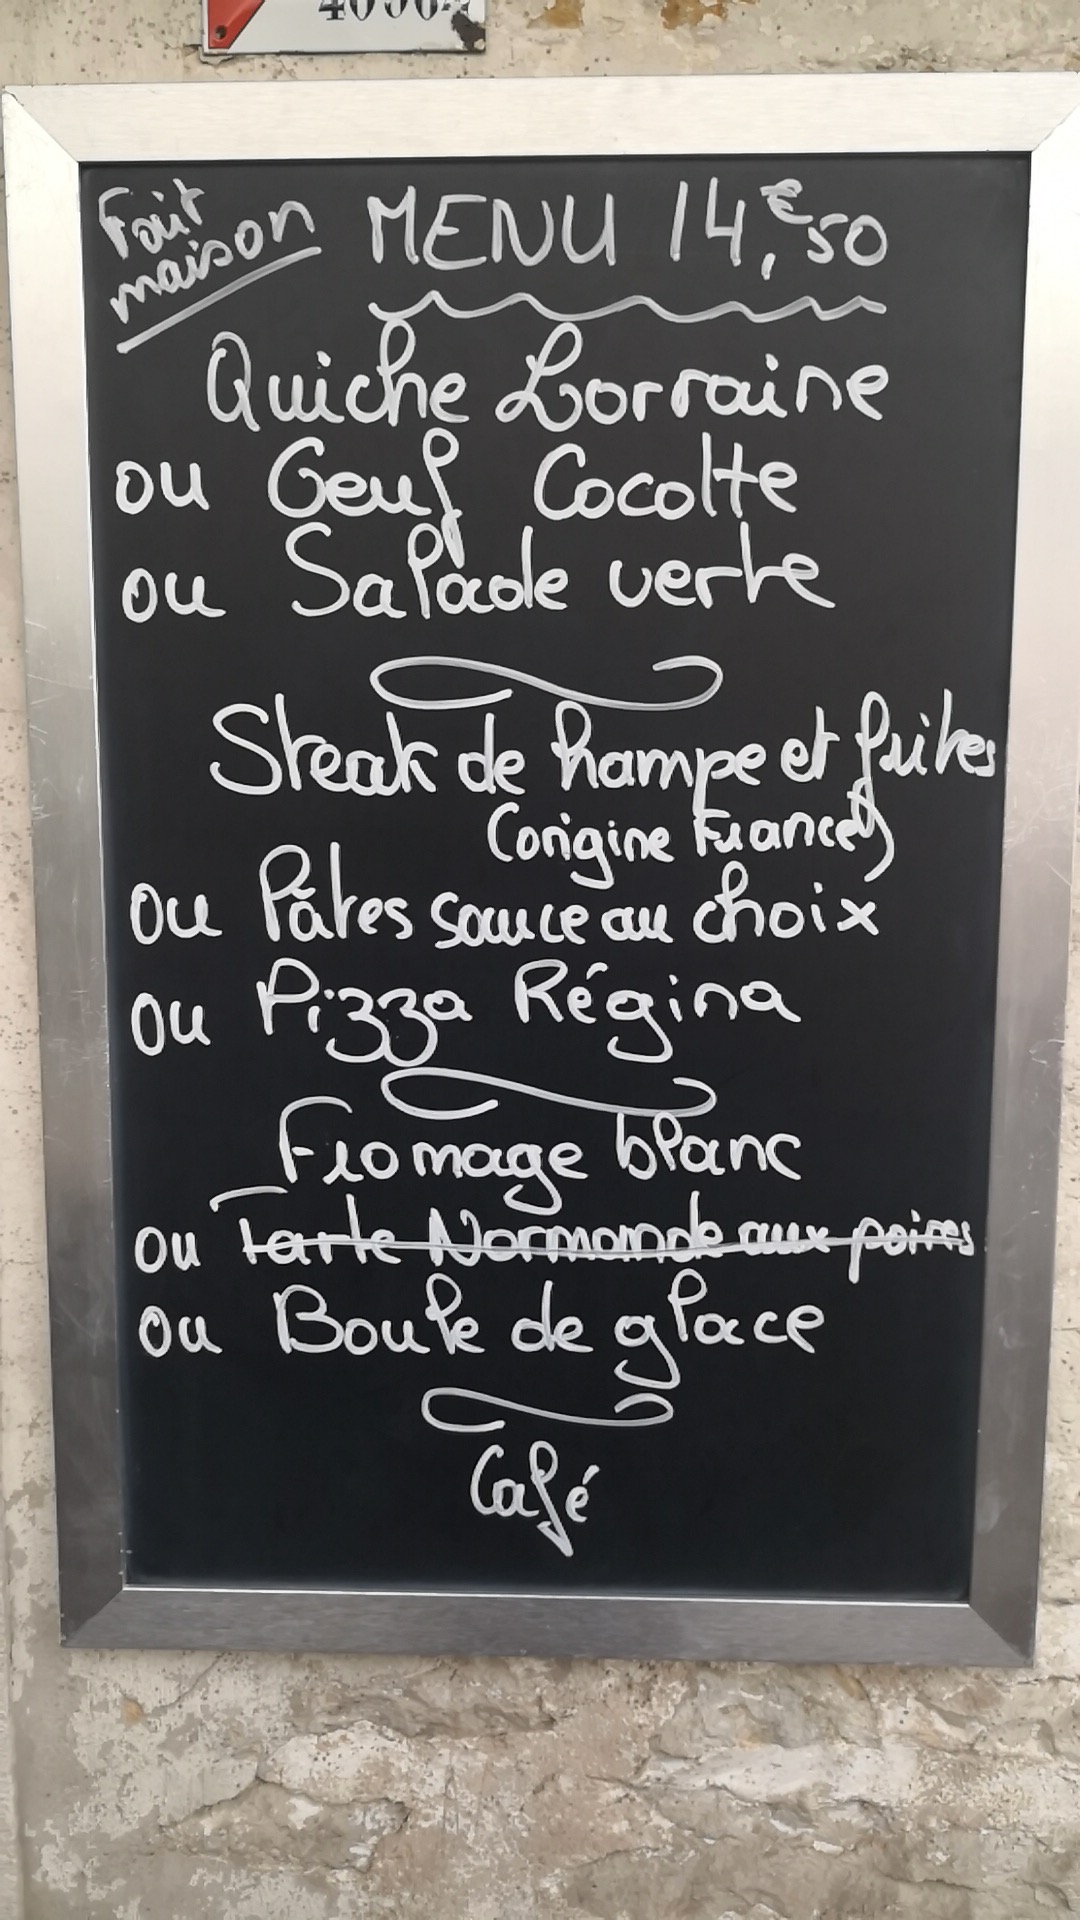 Fait
maison
MENU 14,€50
Quiche Lorraine
ou Oeuf Cocotte
ou Salade verte
Steak de hampe et frites
(origine France)
ou Pâtes sauce au choix
ou Pizza Régina
Fromage blanc
ou Tarte Normande aux poires
ou Boule de glace
Café